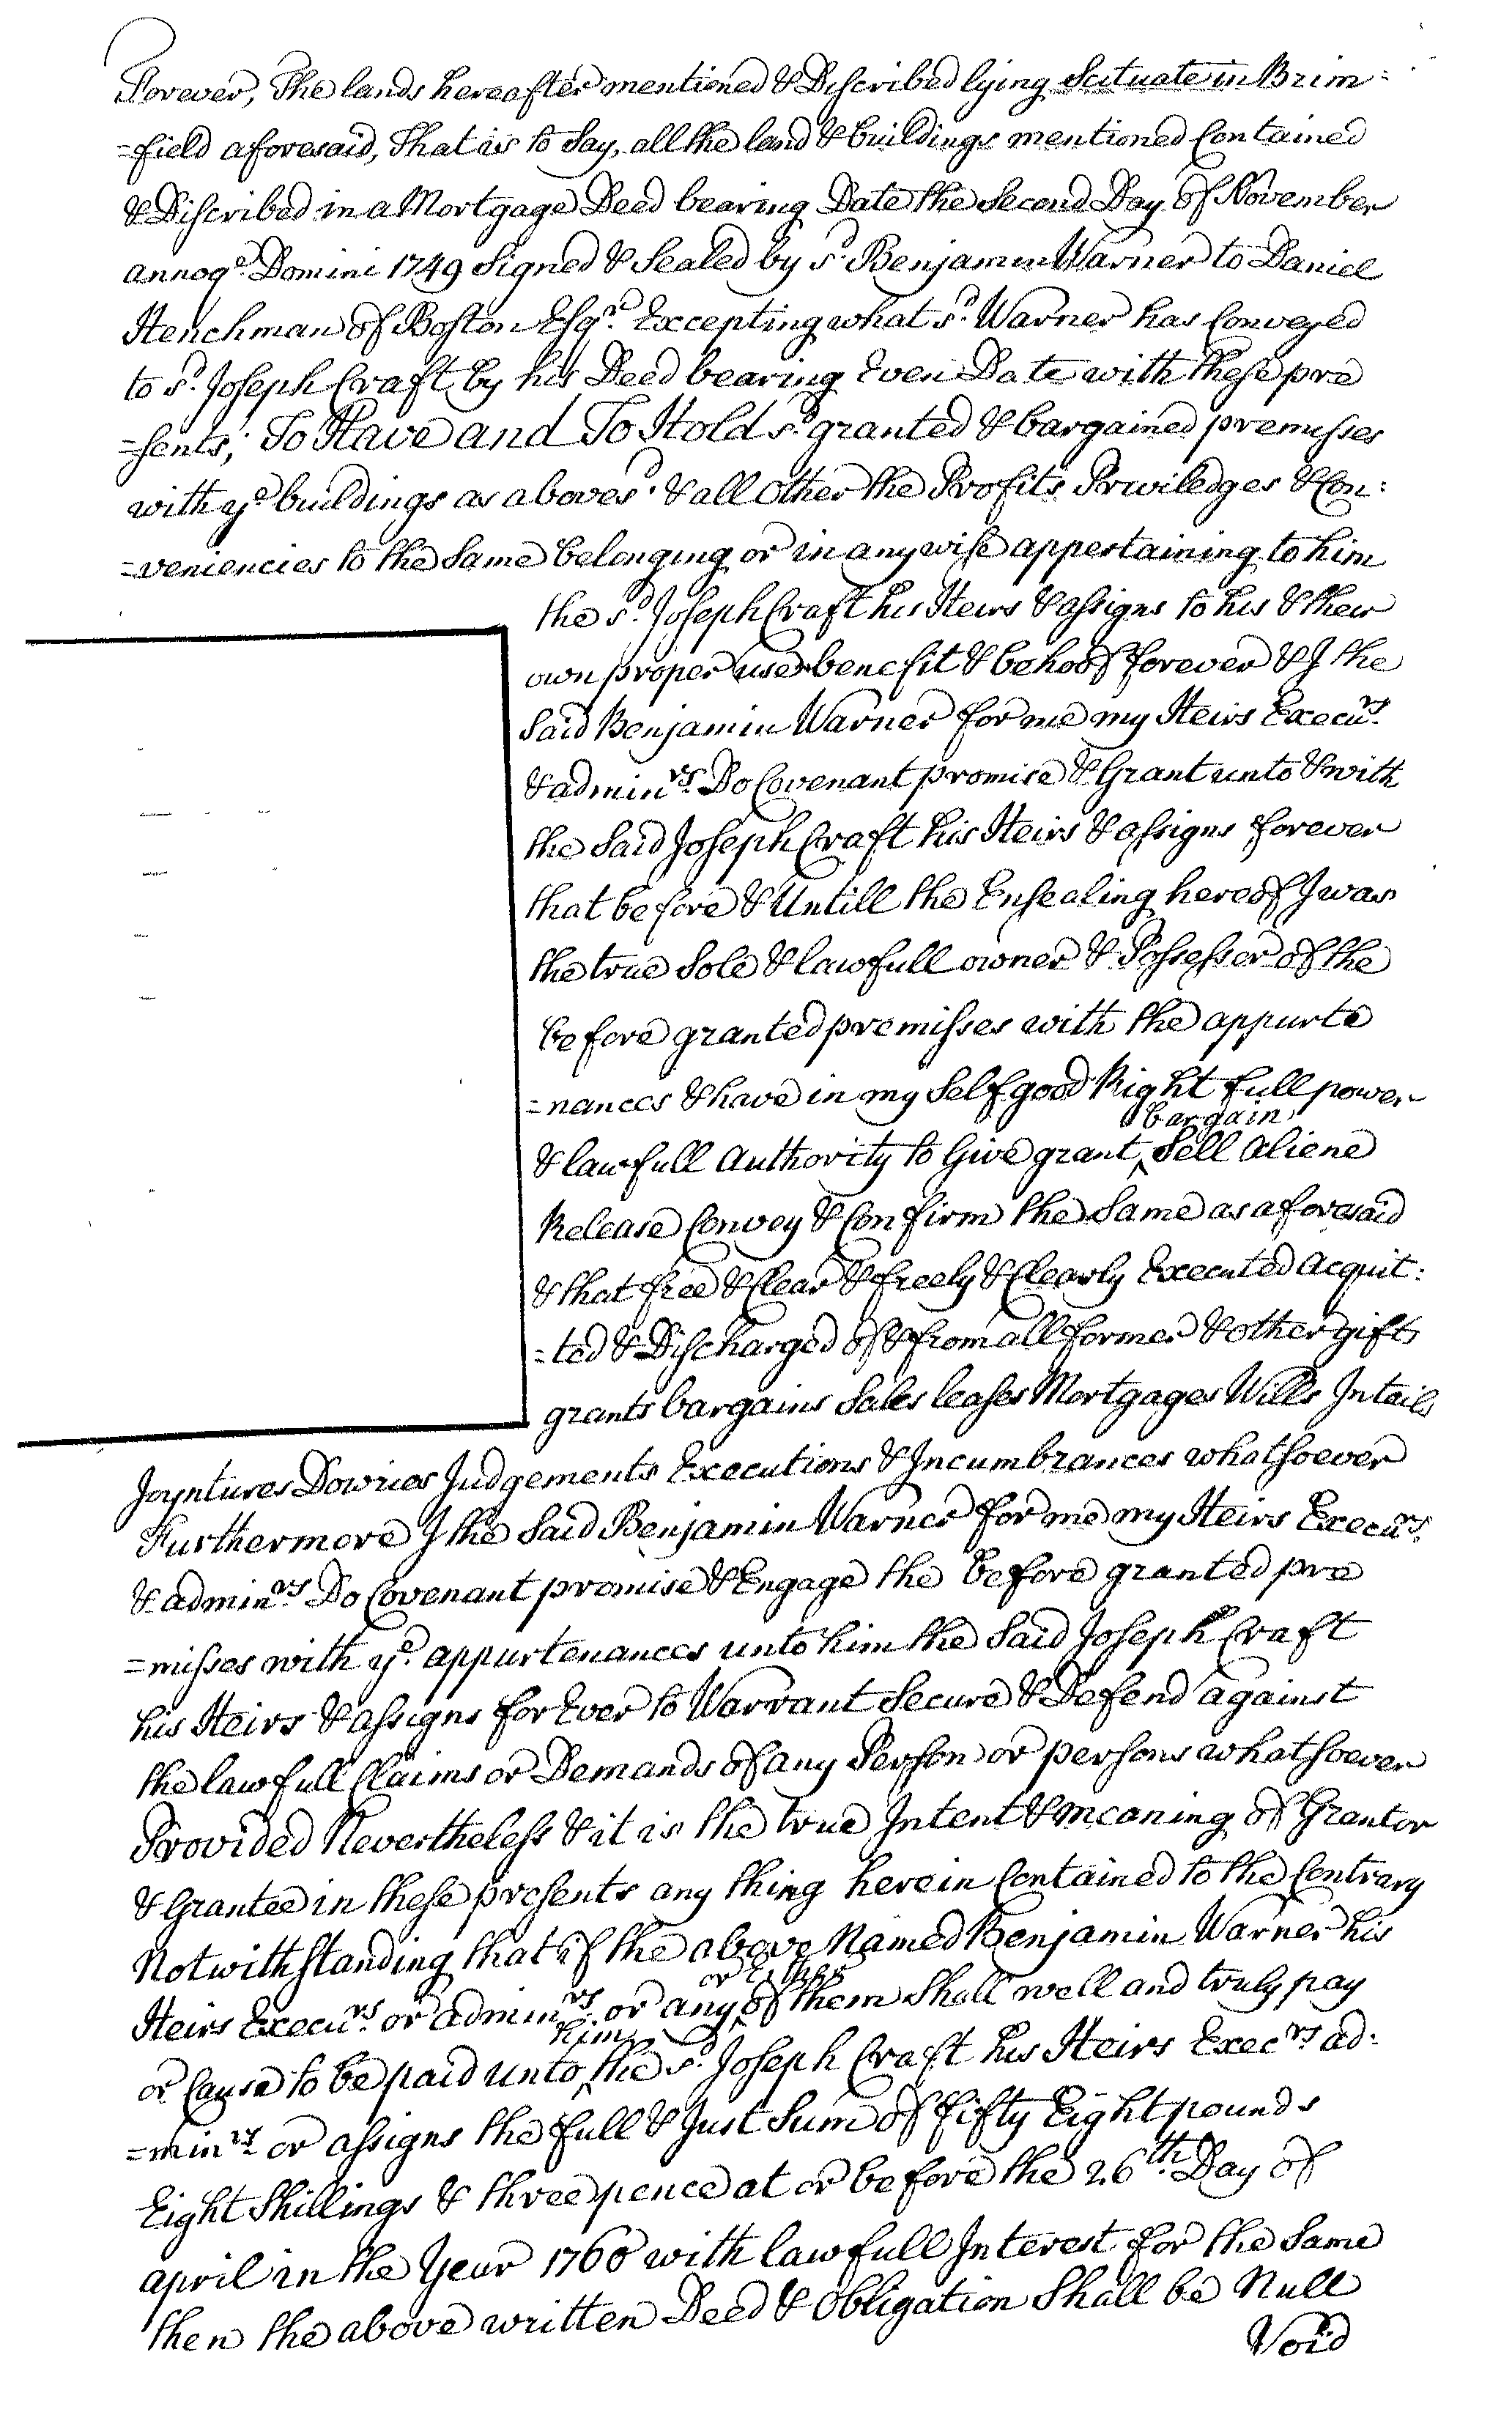 Forever, The lands hereafter mentioned & Discribed lying Scituate in Brim=
=field aforesaid, That is to Say, all the land & buildings mentioned Contained
& Discribed in a Mortgage Deed bearing Date the Second Day of November
annoqe. Domini 1749 Signed & Sealed by sd. Benjamin Warner to Daniel
Henchman of Boston Esqr. Excepting what sd. Warner has Conveyed
to sd. Joseph Craft by his Deed bearing Even Date with these pre
=sents; To Have and To Hold sd. granted & bargained premisses
with ye. buildings as abovesd. & all Other the Profits Priviledges & Con:
=veniencies to the Same belonging or in any wise appertaining to him
the sd. Joseph Craft his Heirs & assigns to his & their
own proper use benefit & behoof forever & I the
Said Benjamin Warner for me my Heirs Execurs.
& adminrs. Do Covenant promise & Grant unto & with
the Said Joseph Craft his Heirs & assigns forever
that before & Untill the Ensealing hereof I was
the true Sole & lawfull owner & Possesser of the
before granted premisses with the appurte
=nances & have in my Self good Right full power
bargain
& lawfull Authority to Give grant ^ Sell Aliene
Release Convey & Confirm the Same as aforesaid
& that free & Clear & freely & Clearly Executed Acquit:
=ted & Discharged of & from all former & other gifts
grants bargains Sales leases Mortgages Wills Intails
Joyntures Dowries Judgements Executions & Incumbrances whatsoever
Furthermore I the Said Benjamin Warner for me my Heirs Execurs.
& adminrs. Do Covenant promise & Engage the before granted pre
=misses with ye. appurtenances unto him the Said Joseph Craft
his Heirs & assigns for Ever to Warrant Secure & Defend against
the lawfull Claims or Demands of any Person or persons whatsoever
Provided Nevertheless & it is the true Intent & meaning of Grantor
& Grantee in these presents any thing herein Contained to the Contrary
Notwithstanding that if the above Named Benjamin Warner his
or Either
Heirs Execurs. or adminrs. or any ^ of them Shall well and truly pay
him
or Cause to be paid unto ^ the sd. Joseph Craft his Heirs Execrs ad:
=minrs. or assigns the full & Just Sum of fifty Eight pounds
Eight Shillings & three pence at or before the 26th. Day of
april in the Year 1760 with lawfull Interest for the Same
then the above written Deed & Obligation Shall be Null
Void